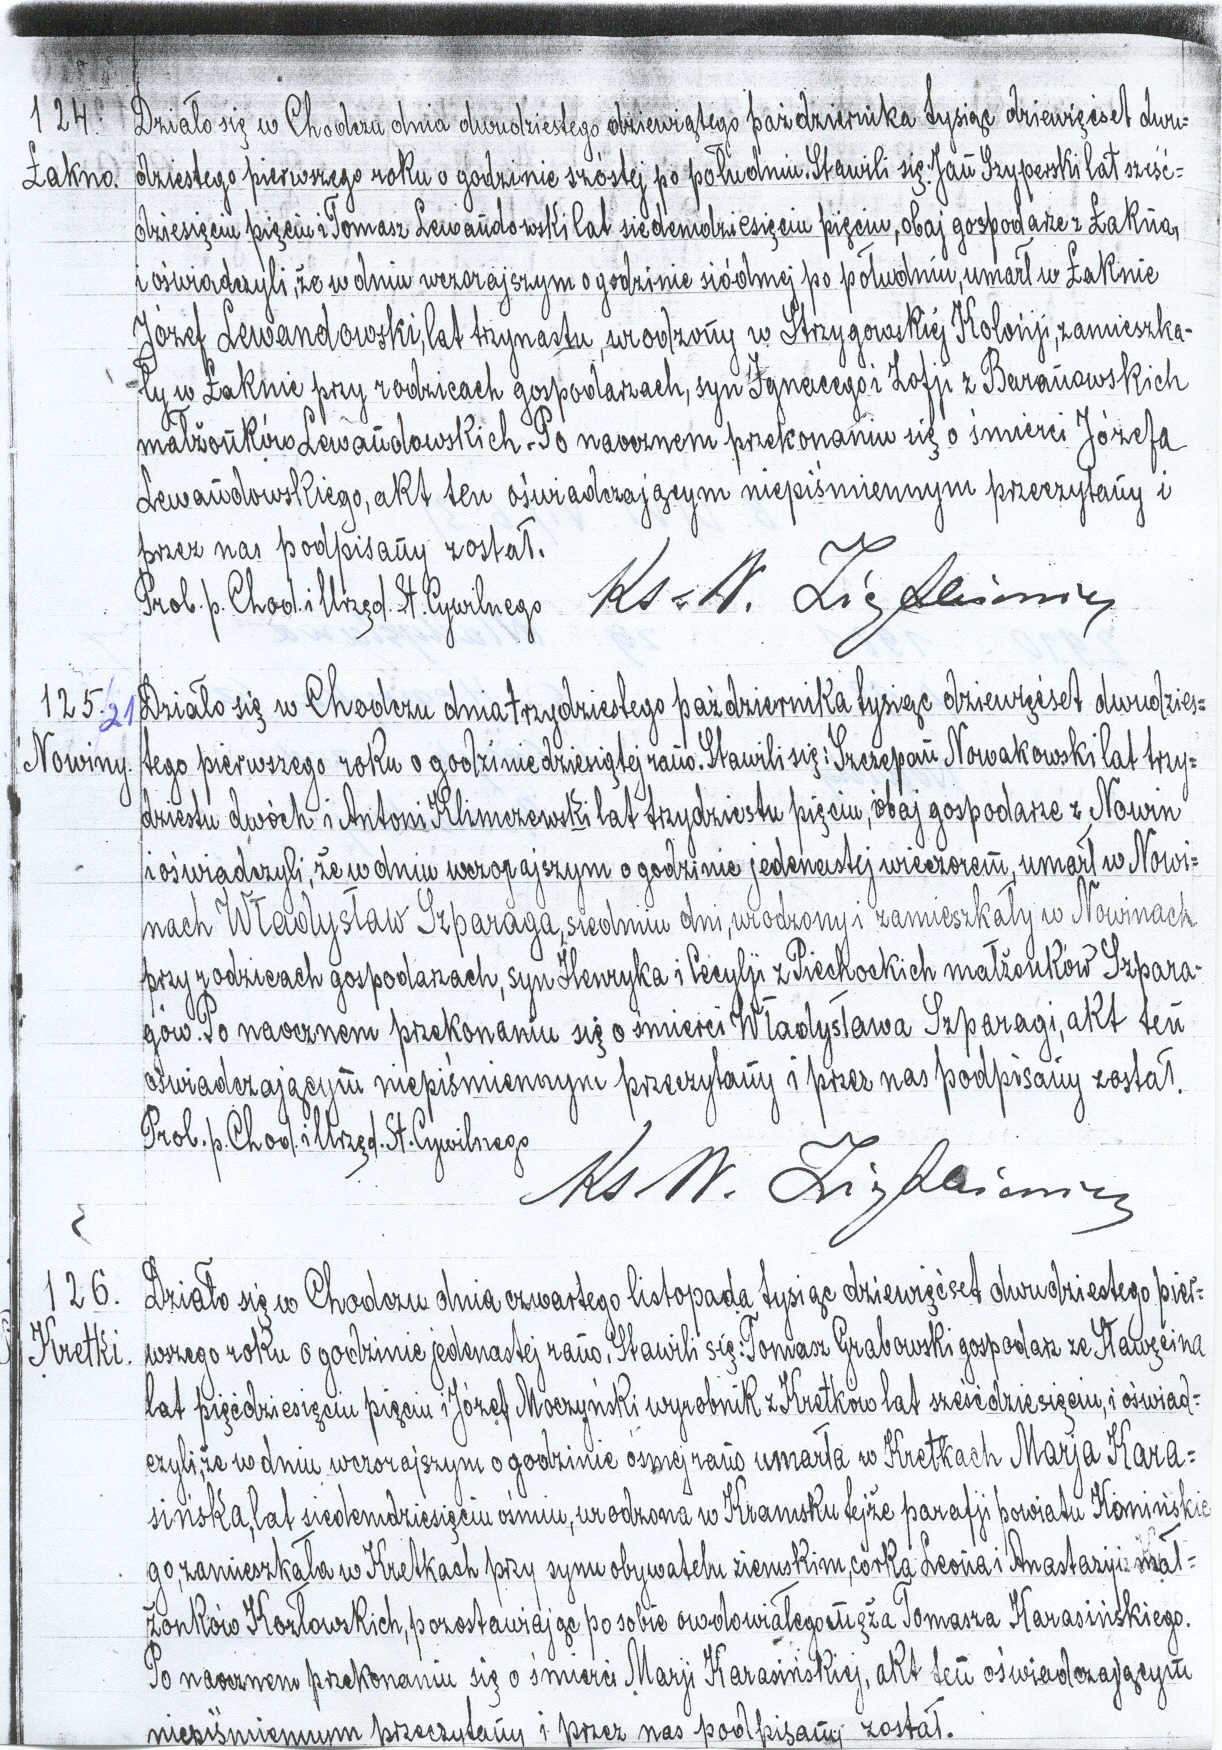 124. Działo się w Chodczu dnia dwudziestego dziewiątego października tysiąc dziewięćset dwu=
Łakno. dziestego pierwszego roku o godzinie szóstej po południu. Stawili się: Jan Szyperski lat sześć=
dziesięciu pięciu i Tomasz Lewandowski lat siedemdziesięciu pięciu, obaj gospodarze z Łakna,
i oświadczyli, że w dniu wczorajszym o godzinie siódmej po południu, umarł w Łaknie
Józef Lewandowski, lat trzynastu, urodzony w Strzygowskiej Kolonji, zamieszka-
ły w Łaknie przy rodzicach gospodarzach, syn Ignacego i Zofji z Baranowskich
małżonków Lewandowskich. Po naocznem przekonaniu się o śmierci Józefa
Lewandowskiego, akt ten oświadczającym niepiśmiennym przeczytany i
przez nas podpisany został.
Prob. p. Chod. i Urzęd. St. Cywilnego Ks. W.
125. /21 Działo się w Chodczu dnia trzydziestego października tysiąc dziewięćset dwudzies=
Nowiny. tego pierwszego roku o godzinie dziesiątej rano. Stawili się: Szczepan Nowakowski lat trzy=
dziestu dwóch i Antoni Klimczewski lat trzydziestu pięciu, obaj gospodarze z Nowin
i oświadczyli, że w dniu wczorajszym o godzinie jedenastej wieczorem, umarł w Nowi=
nach Władysław Szparaga, siedmiu dni, urodzony i zamieszkały w Nowinach
przy rodzicach gospodarzach, syn Henryka i Cecylji z Piechockich małżonków Szpara-
gów. Po naocznem przekonaniu się o śmierci Władysława Szparagi, akt ten
oświadczającym niepiśmiennym przeczytany i przez nas podpisany został.
Prob. p. Chod. i Urzęd. St. Cywilnego
Ks. W.
126. Działo się w Chodczu dnia czwartego listopada tysiąc dziewięćset dwudziestego pier=
Kretki. wszego roku o godzinie jedenastej rano. Stawili się: Tomasz Grabowski gospodarz ze Sławęcina
lat pięćdziesięciu pięciu i Józef Moczyński wyrobnik z Kretkow lat sześćdziesięciu, i oświad=
czyli, że w dniu wczorajszym o godzinie ósmej rano umarła w Kretkach Marja Kara=
sińska, lat siedemdziesięciu ośmiu, urodzona w Kramsku tejże parafji powiatu Konińskie
go, zamieszkała w Kretkach przy synu obywatelu ziemskim, córka Leona i Anastazji mał=
żonków Kozłowskich, pozostawiając po sobie owdowiałego męża Tomasza Karasińskiego.
Po naocznem przekonaniu się o śmierci Marji Karasińskiej, akt ten oświadczającym
niepiśmiennym przeczytany i przez nas podpisany został.